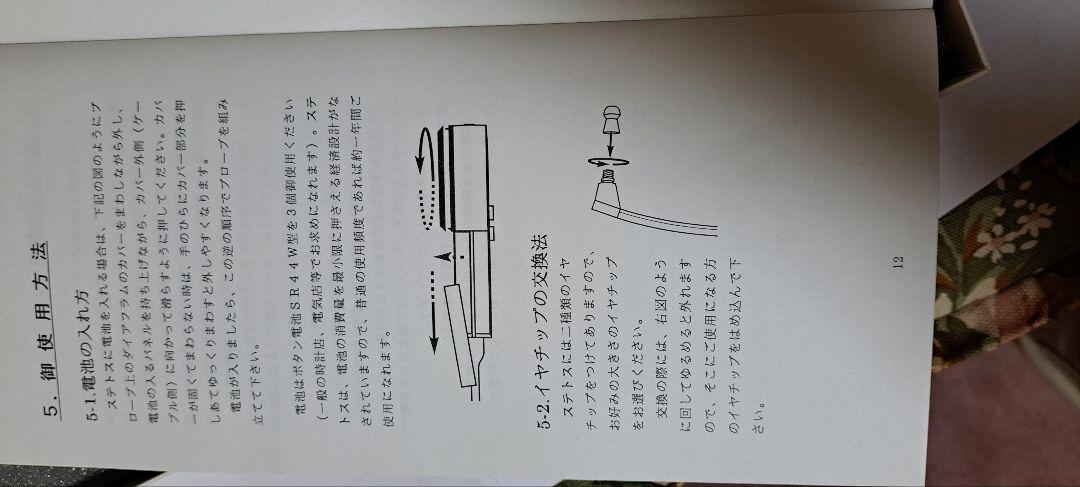 5. 御使用方法
5-1.電池の入れ方
ステトスに電池を入れる場合は、下記の図のようにプ
ローブ上のダイアフラムのカバーをまわしながら外し、
電池の入るパネルを持ち上げながら、カバー外側(ケー
ブル側)に向かって滑らすように押してください。カバ
ーが固くてまわらない時は、手のひらにカバー部分を押
しあてゆっくりまわすと外しやすくなります。
電池が入りましたら、この逆の順序でプローブを組み
立てて下さい。
電池はボタン電池SR44W型を3個御使用ください
(一般の時計店、電気店等でお求めになれます)。ステ
トスは、電池の消費量を最小限に押さえる経済設計がな
されていますので、普通の使用頻度であれば約一年間ご
使用になれます。
5-2.イヤチップの交換法
ステトスには二種類のイヤ
チップをつけてありますので、
お好みの大きさのイヤチップ
をお選びください。
交換の際には、右図のよう
に回してゆるめると外れます
ので、そこにご使用になる方
のイヤチップをはめ込んで下
さい。
12